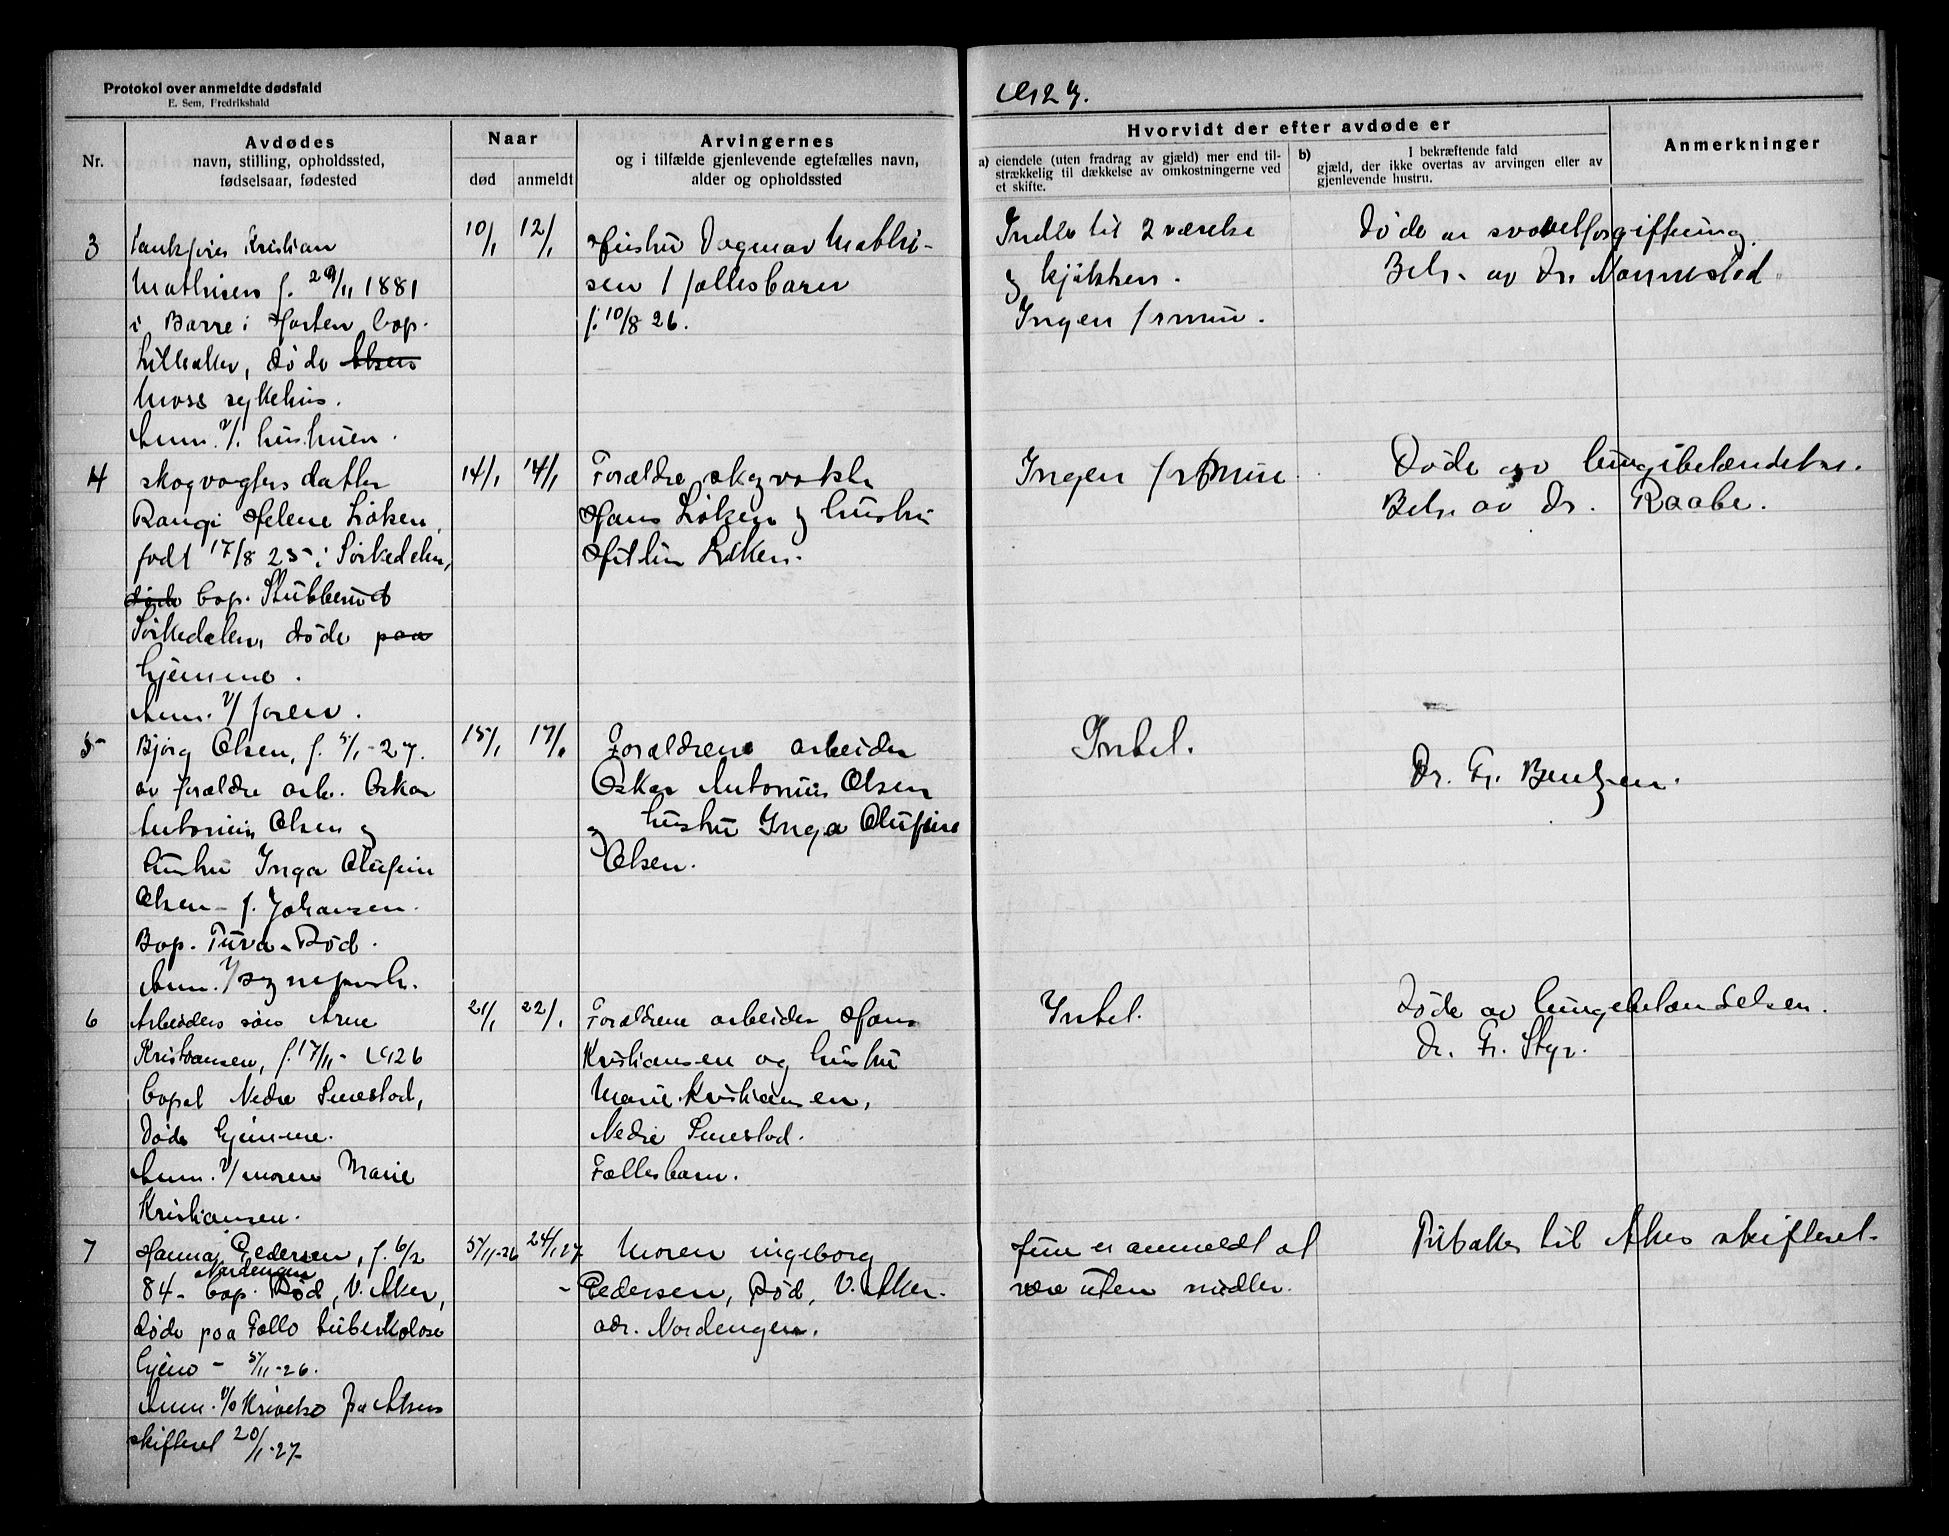 Protokol over anmeldte dødsfald
E. Sem, Fredrikshald
1927.
Nr.
Avdødes
navn, stilling, opholdssted,
fødselsaar, fødested
Naar
død
anmeldt
Arvingernes
og i tilfælde gjenlevende egtefælles navn,
alder og opholdssted
Hvorvidt der efter avdøde er
a) eiendele (uten fradrag av gjæld) mer end til-
strækkelig til dækkelse av omkostningerne ved
et skifte.
b) I bekræftende fald
gjæld, der ikke overtas av arvingen eller av
gjenlevende hustru.
Anmerkninger
3
Kristian
Mathisen f. 29/11 1881
i Borre i Horten bop.
Lilleaker, døde Akers
Moss sykehus.
Anm. v/ hustruen.
10/1
12/1
Hustru Dagmar Mathi-
sen 1 fællesbarn
f. 10/8 26.
Indbo til 2 værelse
og kjøkken.
Ingen formue.
Døde av svovelforgiftning.
Bek. av Dr. Nannestad
4
skogvogters datter
Rangi Helene Løken,
født 17/8 25 i Sørkedalen,
døde bop. Stubberud
Sørkedalen, døde paa
hjemme.
Anm. v/ faren.
14/1
14/1
Forældre skogvokter
Hans Løken og hustru
Løken.
Ingen formue
Døde av lungebetændelse.
Bek. av Dr. Raabe.
5
Bjørg Olsen, f. 5/1-27.
av forældre arb. Oskar
Antonius Olsen og
hustru Inga Olufine
Olsen - f. Johansen.
Bop. Turva - Rød.
Anm. v/ sogneprest.
15/1
17/1
Forældrene arbeider
Oskar Antonius Olsen
og hustru Inga Olufine
Olsen.
Intet.
Dr. Fr. Bentzen.
6
Arbeiders søn Arne
Kristiansen, f. 17/11-1926
bopel Nedre Smestad,
Døde hjemme.
Anm. v/ moren Marie
Kristiansen.
21/1
22/1
Forældrene arbeider Hans
Kristiansen og hustru
Marie Kristiansen,
Nedre Smestad.
Fællesbarn.
Intet.
Døde av lungebetændelsen.
Dr. Fr. Styr.
7
Hanna Pedersen, f. 6/2
Nordengen
84 - bop. Rød, V. Aker,
døde paa Follo tuberkolose
hjem - 5/11-26.
Anm. v/ skrivelse fra Akers
skifteret 20/1-27
5/11-26
24/1 27
Moren Ingeborg
Pedersen, Rød, V. Aker.
adr. Nordengen.
Hun er anmeldt at
være uten midler.
Tilbake til Akers skifteret.